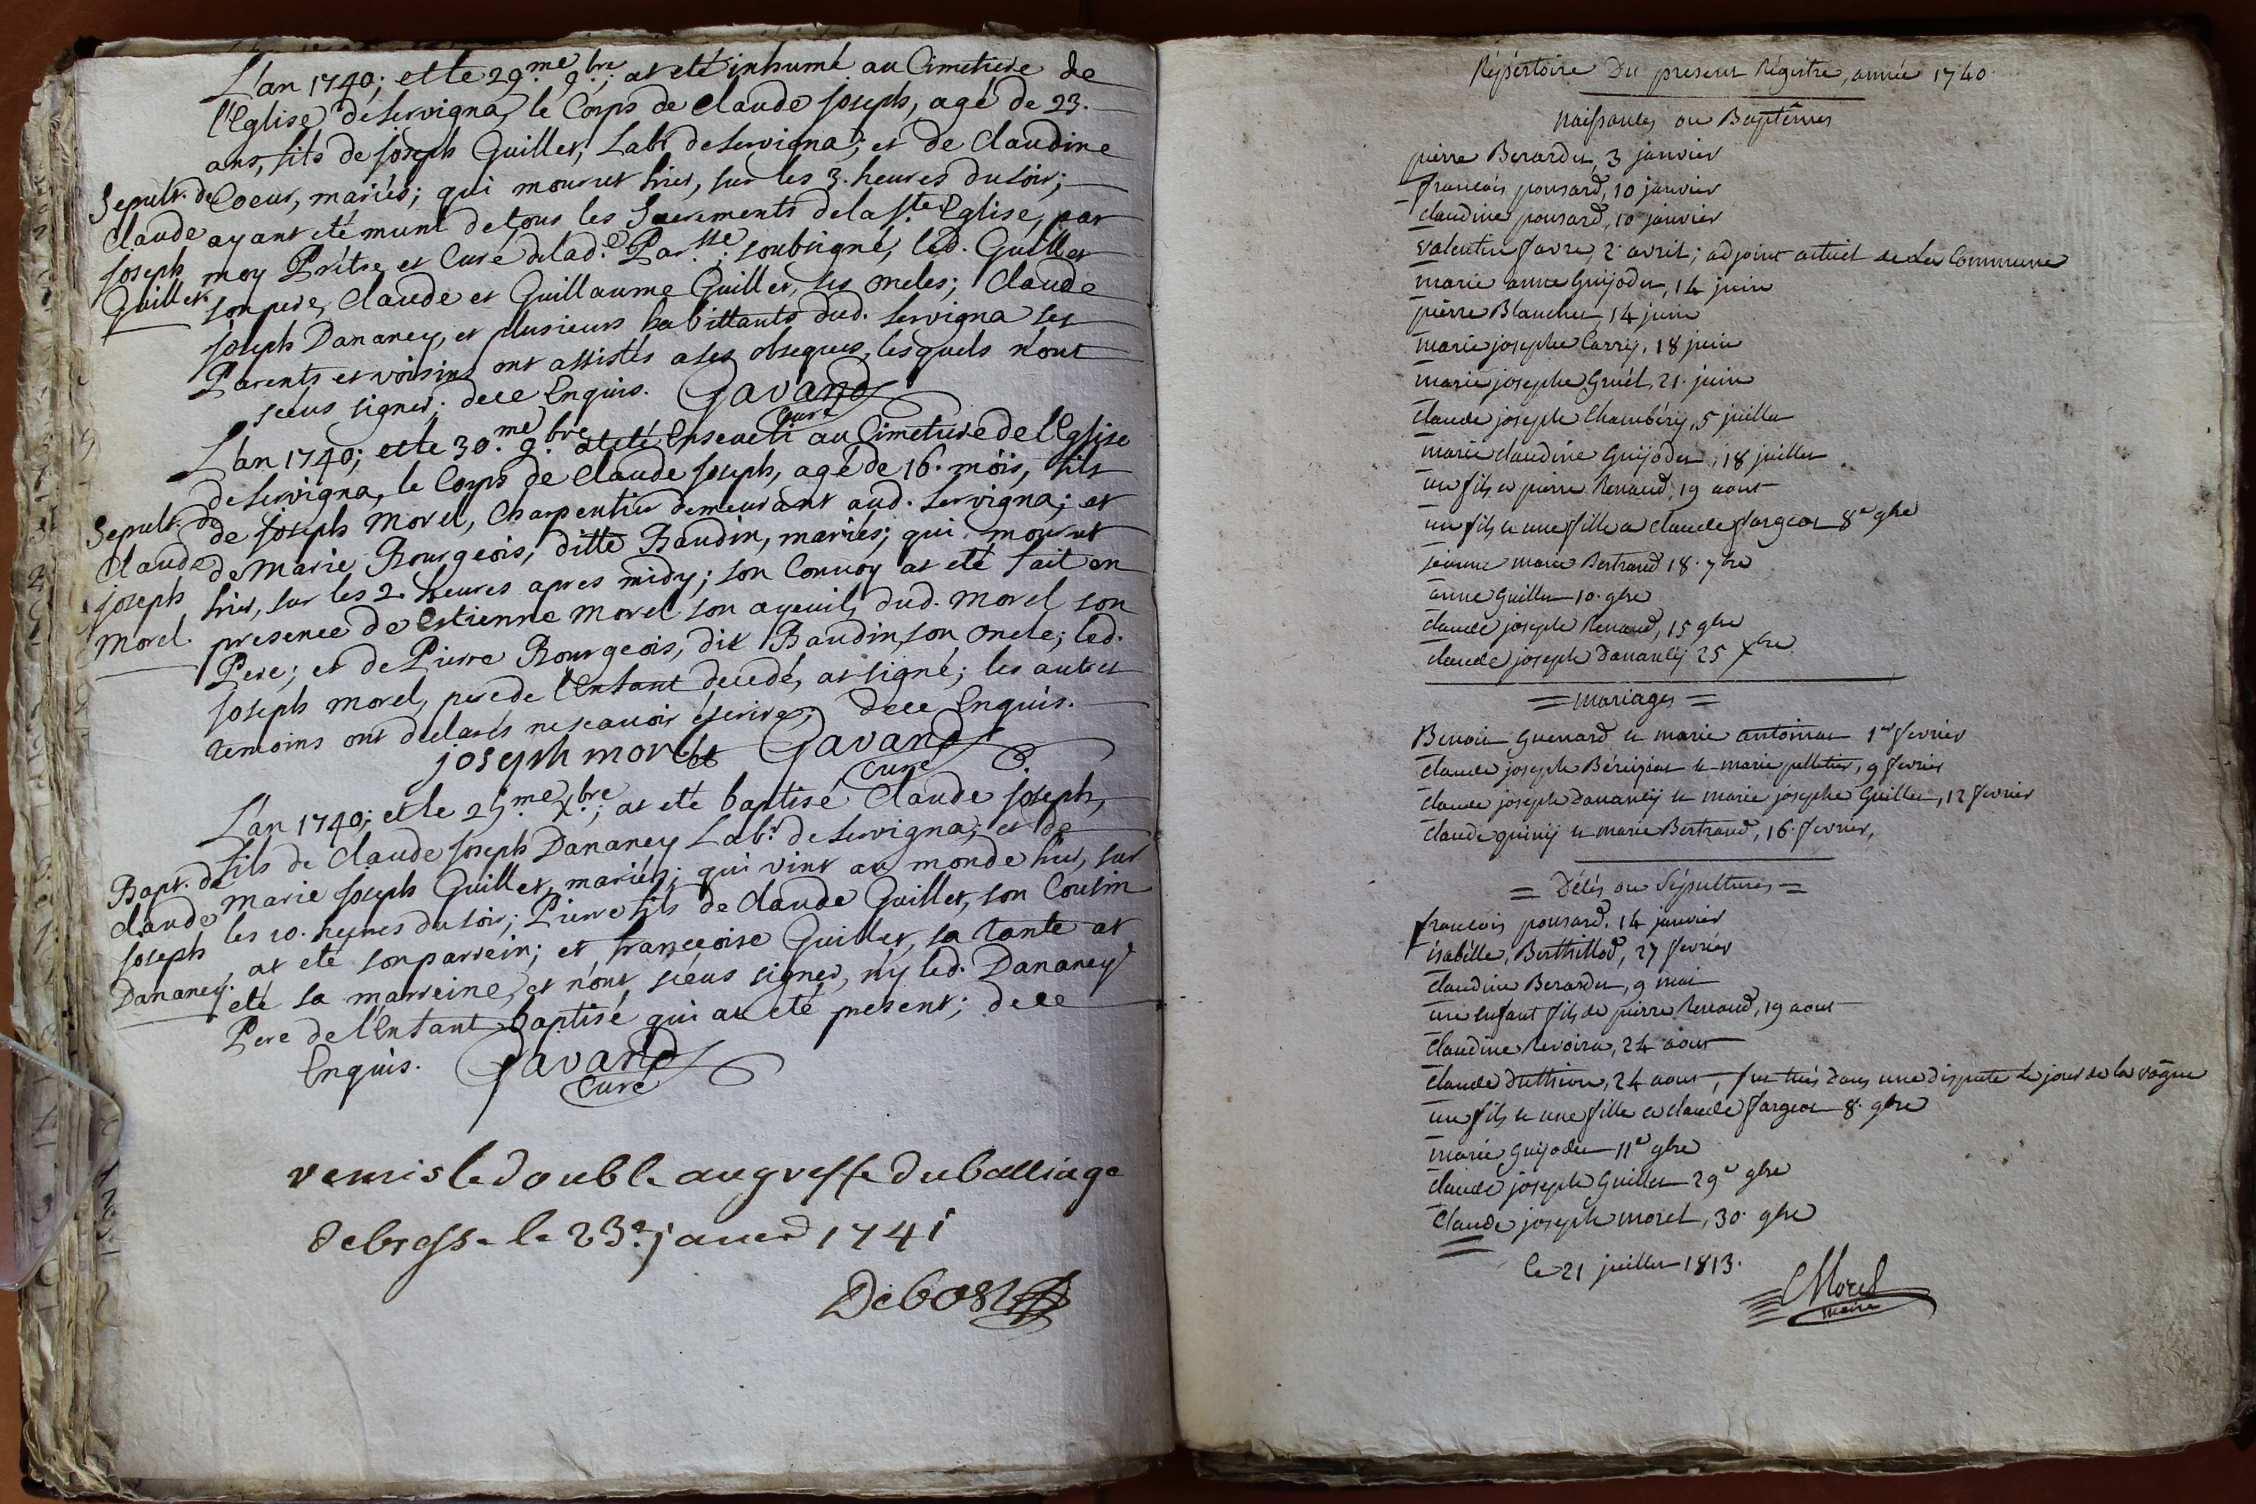 L'an 1740; et le 29.me 9.bre; at eté inhumé au Cimetiere de
l'Eglise de Servigna, le Corps de Claude Joseph, agé de 23.
ans, fils de Joseph Guillet, Labr. de Servigna; et de Claudine
Coeur, mariés; qui mourut hier, sur les 3. heures du soir;
ayant eté muni de tous les Sacrements de la Ste. Eglise, par
moy Prêtre et Curé de lad.e Par.sse soubsigné, led. Guillet
son pere, Claude et Guillaume Guillet, ses oncles; Claude
Joseph Dananey, et plusieurs habittants dud. Servigna ses
Parents et voisins ont assistés a ses obseques, lesquels n'ont
sceus signer. de ce Enquis. Gavand
Curé
Sepult. de
Claude
Joseph
Guillet.
L'an 1740; et le 30.me 9.bre at eté Enseveli au Cimetiere de l'Eglise
de Servigna, le Corps de Claude Joseph, agé de 16. mois, fils
de Joseph Morel, Charpentier demeurant aud. Servigna; et
de Marie Bourgeois, ditte Baudin, mariés; qui mourut
hier, sur les 2. heures apres midy; son Convoy at eté fait en
presence de Estienne Morel son ayeuil, dud. Morel son
Pere; et de Pierre Bourgeois, dit Baudin, son oncle; led.
Joseph Morel, pere de l'Enfant decedé, at signé; les autres
temoins ont declarés ne scavoir écrire, de ce Enquis.
joseph morel Gavand
Curé
Sepult. de
Claude
joseph
Morel.
L'an 1740; et le 25.me X.bre; at eté baptisé Claude Joseph,
fils de Claude Joseph Dananey Lab.r de Servigna; et de
Marie Joseph Guillet, mariés; qui vint au monde hier, sur
les 10. heures du soir; Pierre fils de Claude Guillet, son Cousin
at eté son parrein; et françoise Guillet, sa tante at
eté sa marreine, et n'ont sceus signer, n'y led. Dananey
Pere de l'Enfant baptisé qui at eté present; de ce
Enquis. Gavand
Curé
Bapt. de
Claude
Joseph
Dananey.
remis le double au greffe du balliage
de bresse le 23e janier 1741
Debost
Répertoire Du present Régistre, année 1740.
naissances ou Baptêmes
pierre Berardet, 3 janvier
francois pousard, 10 janvier
claudine pousard, 10 janvier
valentin favre, 2 avril; adjoint actuel de la Commune
marie anne Guijodet, 14 juin
pierre Blanchet, 14 juin
marie josephe Carry, 18 juin
marie josephe Gruel, 21. juin
claude joseph Chambéry, 5 juillet
marie claudine Guijodet, 18 juillet
un fils a pierre Renaud, 19 aout
un fils et une fille a claude fargeot 8e 9bre
jeanne marie Bertrand 18. 7bre
anne Guillet 10. 9bre
claude joseph Renaud, 15 9bre
claude joseph Dananey 25 Xbre
= mariages =
Benoit Guenard et marie antoinat 1er fevrier
claude joseph Béréiziat et marie pelletier, 9 fevrier
claude joseph dananey et marie josephe Guillet, 12 fevrier
claude et marie Bertrand, 16. fevrier,
= Décés ou Sépultures =
francois pousard, 14 janvier
isabelle, Berthillod, 27 fevrier
claudine Berardet, 9 mai
un enfant fils de pierre Renaud, 19 aout
claudine Revoira, 24 aout
claude duthion, 24 aout, fut tué dans une dispute le jour de la vôgue
un fils et une fille a claude fargeot 8. 9bre
marie Guijodet 11e 9bre
claude joseph Guillet 29e 9bre
claude joseph morel, 30. 9bre
le 21 juillet 1813.
Morel
maire